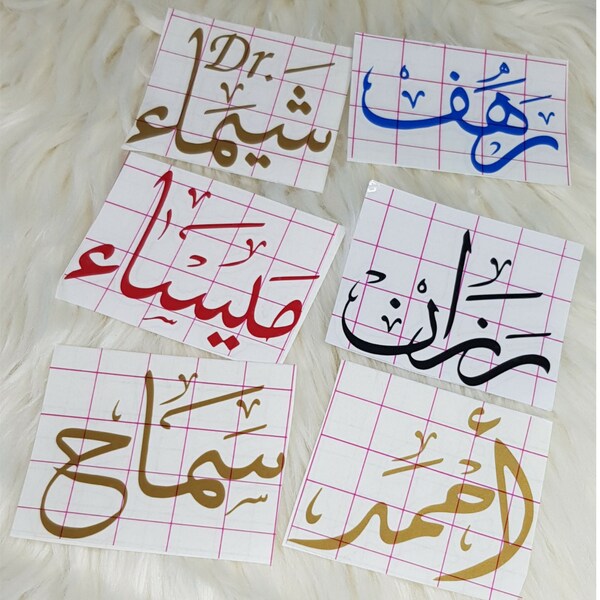 Dr.
شيماء
رهف
ميساء
رزان
سماح
أحمد